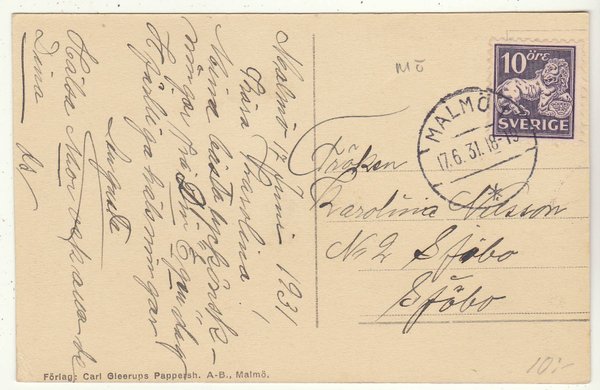 Malmö 17 Juni 1931
Kära Karolina!
Mina bästa lyckönsk-
ningar på Din Egen dag
Hjärtliga hälsningar
Hälsa Mor
Dina
Mö
10 ÖRE
SVERIGE
MALMÖ
17.6.31.18-19
Fröken
Karolina Nilsson
No 2 Sjöbo
Sjöbo
Förlag: Carl Gleerups Pappersh. A-B., Malmö.
10:-